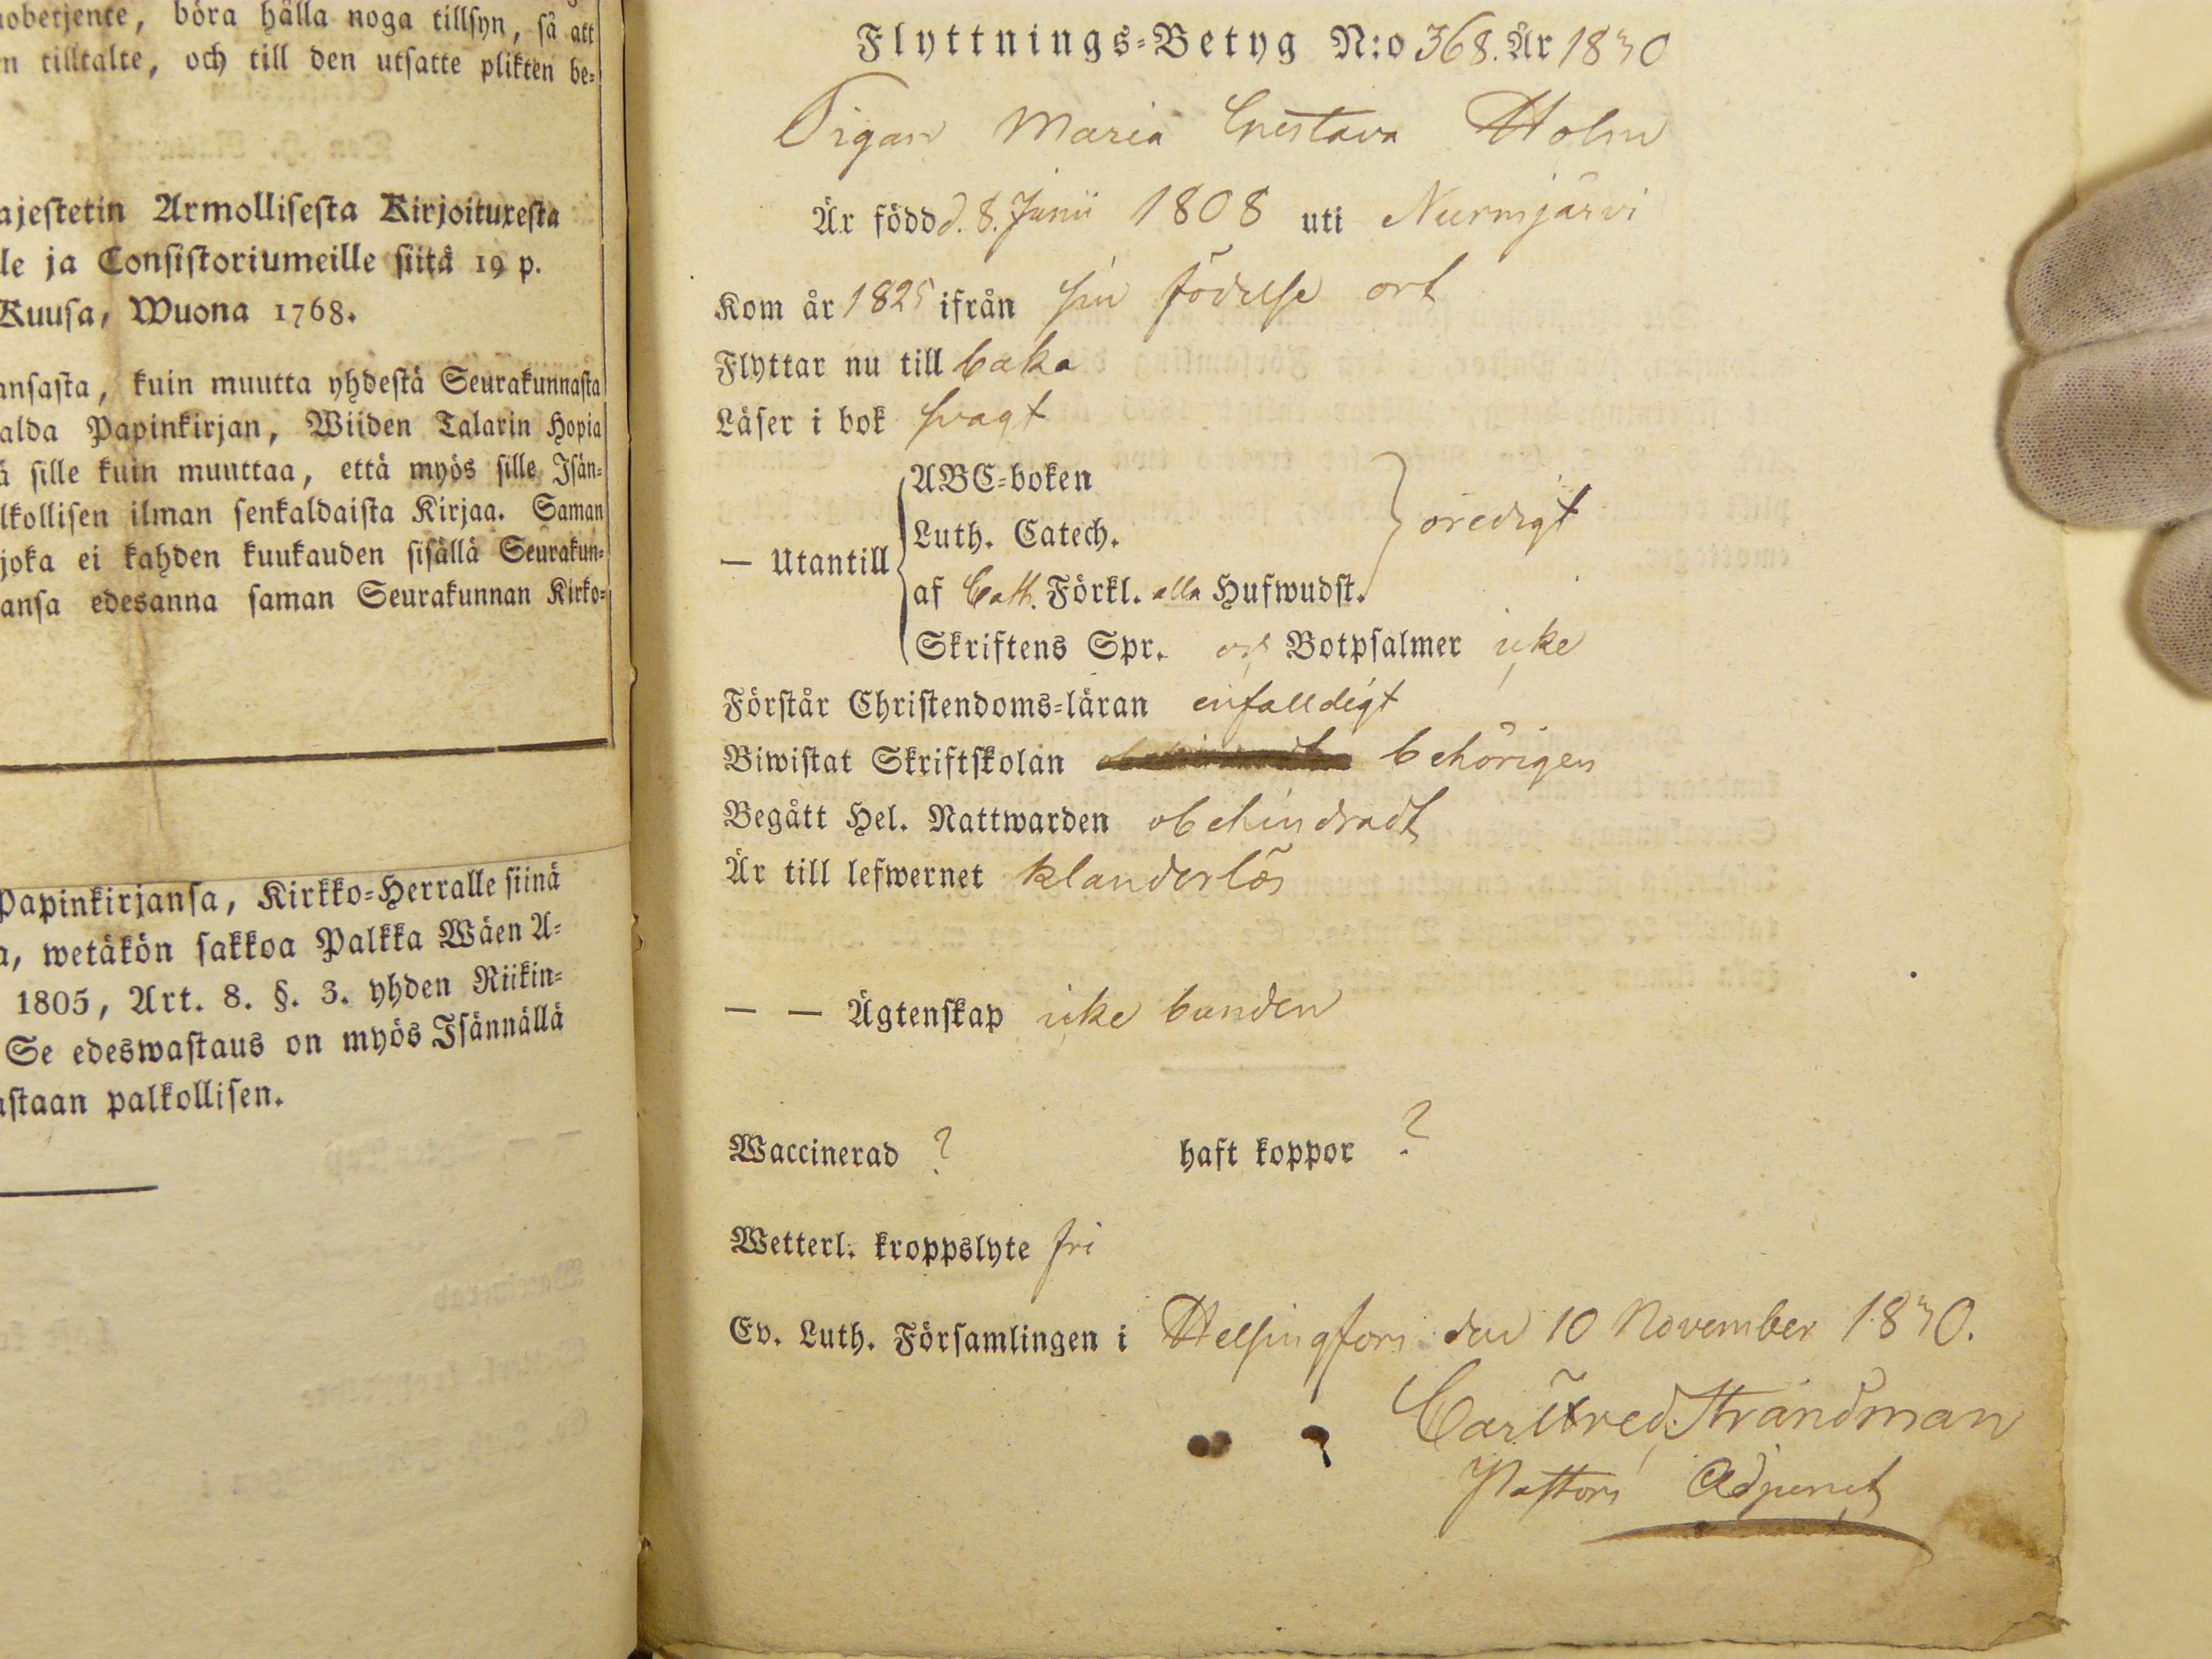 obetjente, böra hålla noga tillsyn, så att
n tilltalte, och till den utsatte plikten be-
ajestetin Armollisesta Kirjoituxesta
le ja Consistoriumeille siitä 19 p.
Kuusa, Wuona 1768.
ansasta, kuin muutta yhdestä Seurakunnasta
alda Papinkirjan, Wiiden Talarin Hopia
ä sille kuin muuttaa, että myös sille Isän-
lkollisen ilman senkaldaista Kirjaa. Saman
joka ei kahden kuukauden sisällä Seurakun-
ansa edesanna saman Seurakunnan Kirko-
Papinkirjansa, Kirkko-Herralle siinä
a, wetäkön sakkoa Palkka Wäen A-
1805, Art. 8. §. 3. yhden Riikin-
Se edeswastaus on myös Isännällä
astaan palkollisen.
Flyttnings-Betyg N:o 368. År 1830
Pigan Maria Gustava Holm
Är född d. 8. Junii 1808 uti Nurmjärvi
Kom år 1825 ifrån sin födelse ort
Flyttar nu till baka
Läser i bok svagt
ABC-boken
Luth. Catech. oredigt
— Utantill
af Cath. Förkl. alla Hufwudst.
Skriftens Spr. och Botpsalmer icke
Förstår Christendoms-läran enfalldigt
Biwistat Skriftskolan behörigen
Begått Hel. Nattwarden obehindradt
Är till lefwernet klanderlös
— — Ägtenskap icke bunden
Waccinerad ? haft koppor ?
Wetterl. kroppslyte fri
Ev. Luth. Församlingen i Helsingfors den 10 November 1830.
Carl Fred. Strandman
Pastors Adjunct